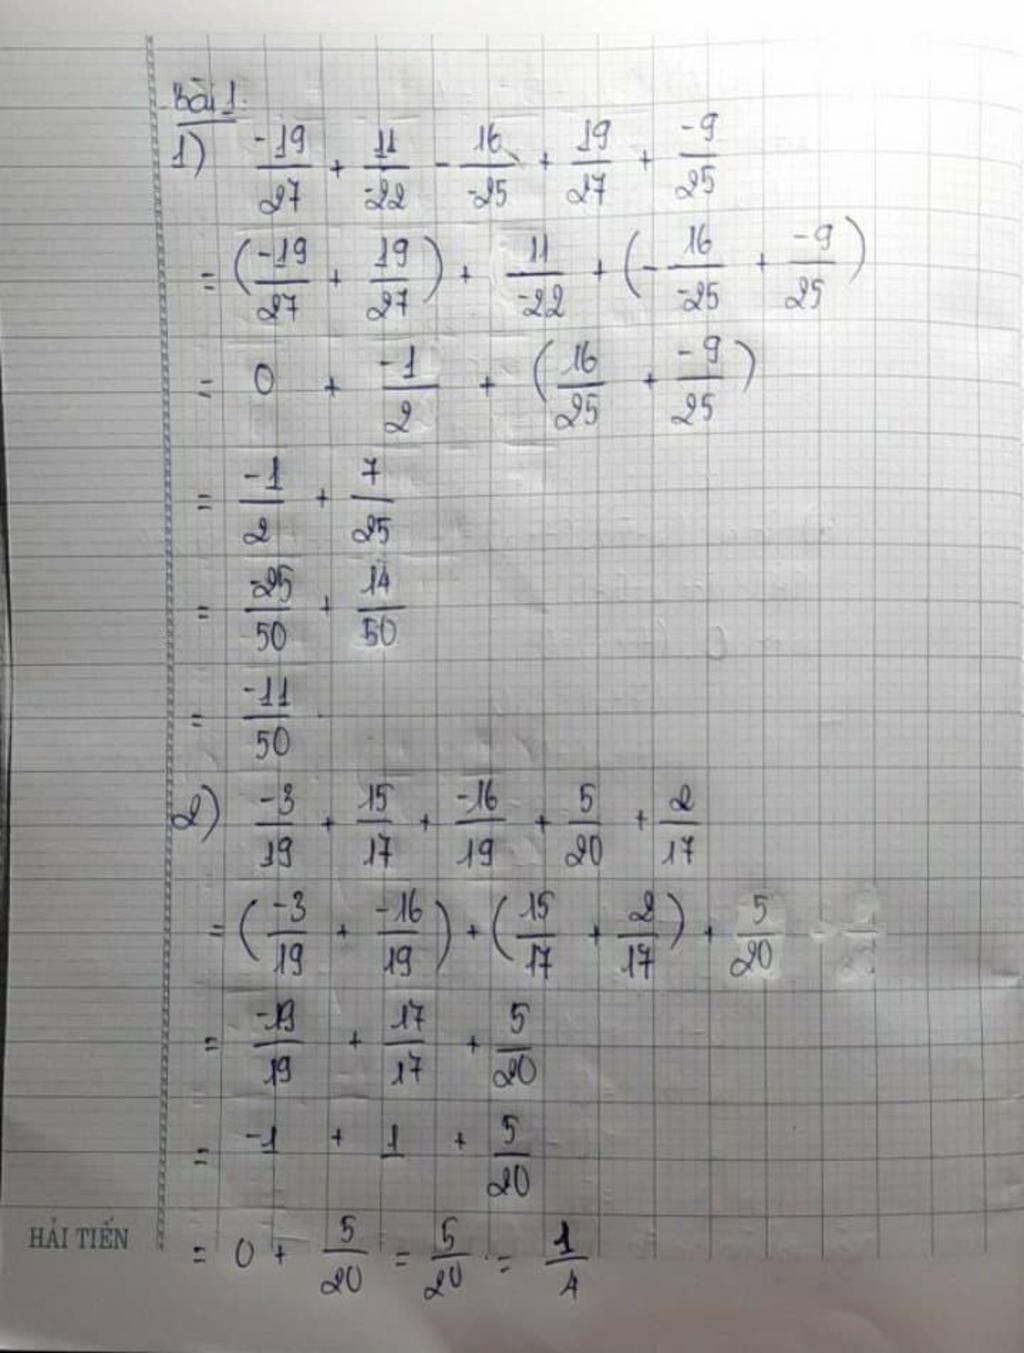 Bài 1.
1) -19/27 + 11/-22 - 16/-25 + 19/27 + -9/25
= (-19/27 + 19/27) + 11/-22 + (- 16/-25 + -9/25)
= 0 + -1/2 + (16/25 + -9/25)
= -1/2 + 7/25
= -25/50 + 14/50
= -11/50
2) -3/19 + 15/17 + -16/19 + 5/20 + 2/17
= (-3/19 + -16/19) + (15/17 + 2/17) + 5/20
= -19/19 + 17/17 + 5/20
= -1 + 1 + 5/20
= 0 + 5/20 = 5/20 = 1/4
HẢI TIẾN